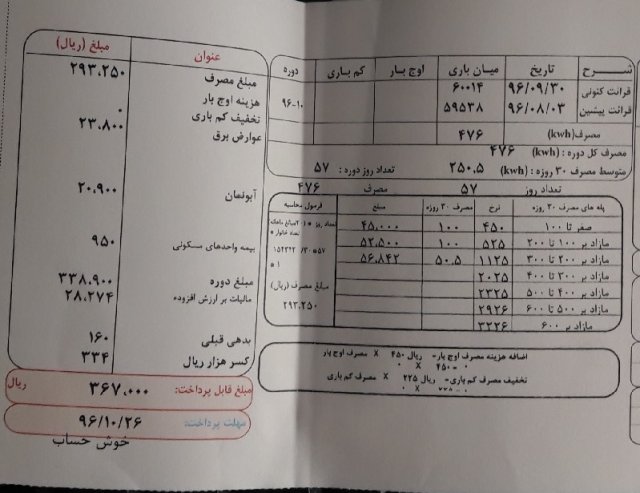 شرح تاریخ میان باری اوج بار کم باری دوره
قرائت کنونی ۹۶/۰۹/۳۰ ۶۰۰۱۴
قرائت پیشین ۹۶/۰۸/۰۳ ۵۹۵۳۸ ۹۶-۱۰
مصرف(kwh) ۴۷۶
مصرف کل دوره : (kwh) ۴۷۶
متوسط مصرف ۳۰ روزه : (kwh) ۲۵۰.۵ تعداد روز دوره : ۵۷
تعداد روز ۵۷ مصرف ۴۷۶
پله های مصرف ۳۰ روزه نرخ مصرف ۳۰ روزه مبلغ فرمول محاسبه
صفر تا ۱۰۰ ۴۵۰ ۱۰۰ ۴۵،۰۰۰
مازاد بر ۱۰۰ تا ۲۰۰ ۵۲۵ ۱۰۰ ۵۲،۵۰۰
مازاد بر ۲۰۰ تا ۳۰۰ ۱۱۲۵ ۵۰.۵ ۵۶،۸۴۲
مازاد بر ۳۰۰ تا ۴۰۰ ۲۰۲۵
مازاد بر ۴۰۰ تا ۵۰۰ ۲۳۲۵
مازاد بر ۵۰۰ تا ۶۰۰ ۲۹۲۶
مازاد بر ۶۰۰ ۳۲۲۶
تعداد خانوار *
۱۵۴۳۴۲ *۳۰/ ۵۷
* ۱
مبلغ مصرف (ریال)
۲۹۳،۲۵۰
اضافه هزینه مصرف اوج بار= ریال ۴۵۰ X مصرف اوج بار
۰ = ۴۵۰ X ۰
تخفیف مصرف کم باری= ریال ۲۲۵ X مصرف کم باری
عنوان مبلغ (ریال)
مبلغ مصرف ۲۹۳،۲۵۰
هزینه اوج بار
تخفیف کم باری ۰
عوارض برق ۲۳،۸۰۰
آبونمان ۲۰،۹۰۰
بیمه واحدهای مسکونی ۹۵۰
مبلغ دوره ۳۳۸،۹۰۰
مالیات بر ارزش افزوده ۲۸،۲۷۴
بدهی قبلی ۱۶۰
کسر هزار ریال ۳۳۴
مبلغ قابل پرداخت: ۳۶۷،۰۰۰ ریال
مهلت پرداخت: ۹۶/۱۰/۲۶
خوش حساب